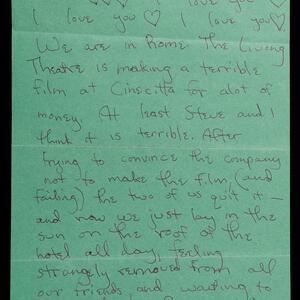 I love you ♡ I love you
I love you ♡ I love you ♡.
We are in Rome The Living
Theatre is making a terrible
film at Cinecitta for alot of
money. At least Steve and I
think it is terrible. After
trying to convince the company
not to make the film (and
failing) the two of us quit it —
and now we just lay in the
sun on the roof of the
hotel all day, feeling
strangely removed from all
our friends and waiting to